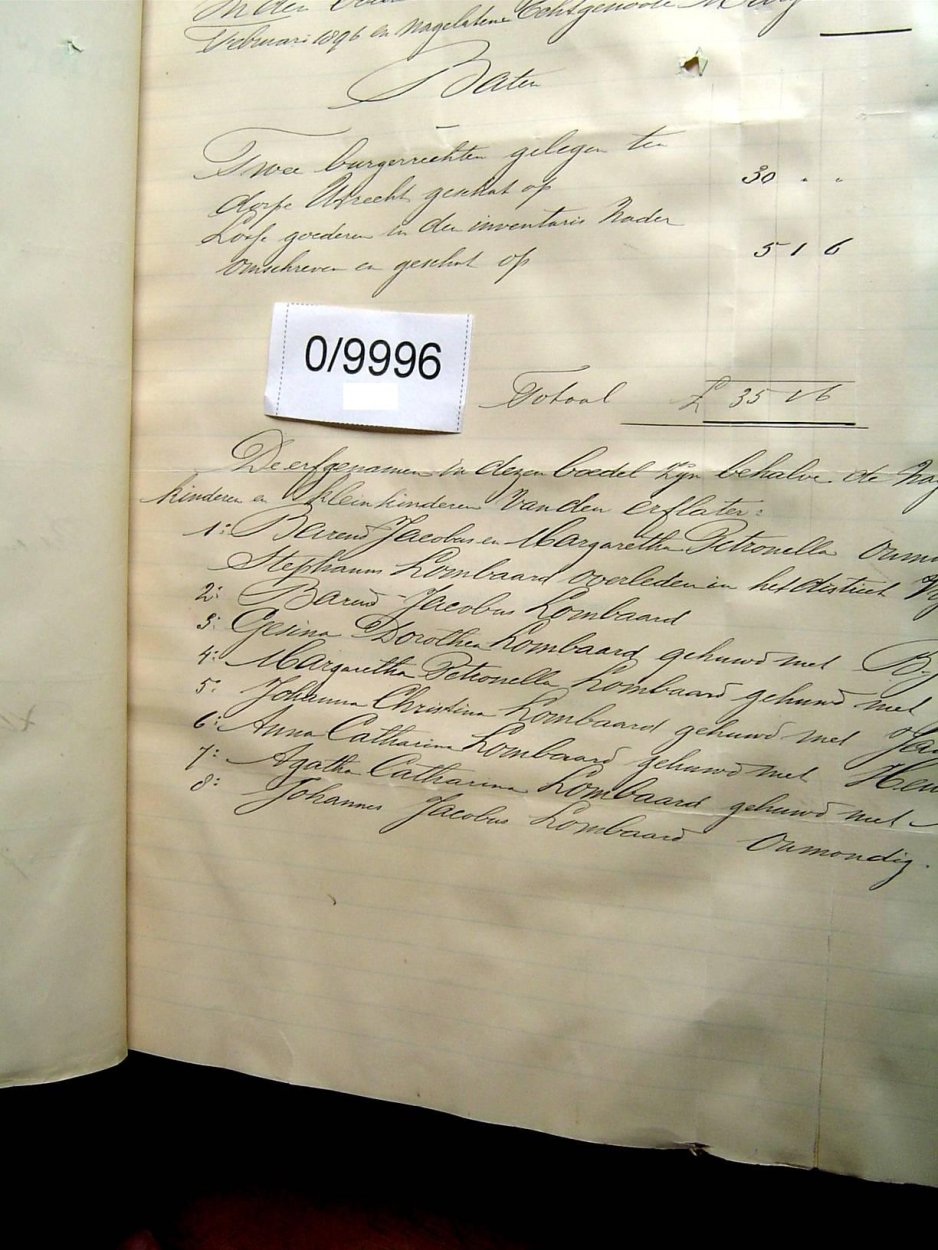 Februari 1896 en nagelatene Echtgenoote
Baten
Twee burgerrechten gelegen ten
dorpe Utrecht geschat op 30 " "
Losse goederen in den inventaris nader
omschreven en geschat op 5 1 6
0/9996
Totaal £ 35 1 6
De erfgenamen in dezen boedel zijn behalve de
kinderen en kleinkinderen van den erflater:
1: Barend Jacobus en Margaretha Petronella
Stephanus Lombaard overleden in het district
2: Barend Jacobus Lombaard
3: Gesina Dorothea Lombaard gehuwd met
4: Margaretha Petronella Lombaard gehuwd met
5: Johanna Christina Lombaard gehuwd met
6: Anna Catharina Lombaard gehuwd met
7: Agatha Catharina Lombaard gehuwd met
8: Johannes Jacobus Lombaard Onmondig.